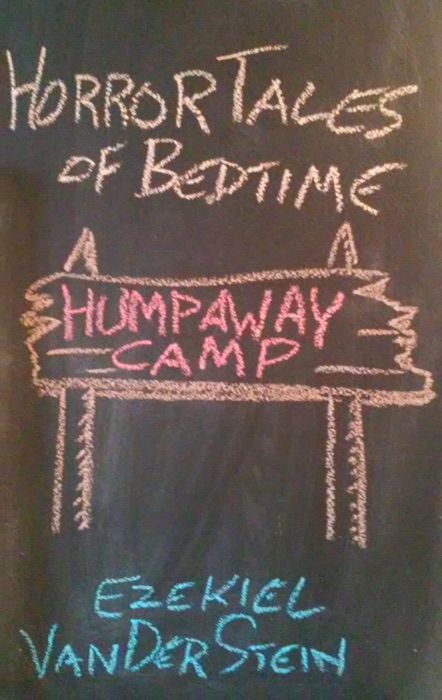 HORROR TALES
OF BEDTIME
HUMPAWAY
CAMP
EZEKIEL
VANDERSTEIN